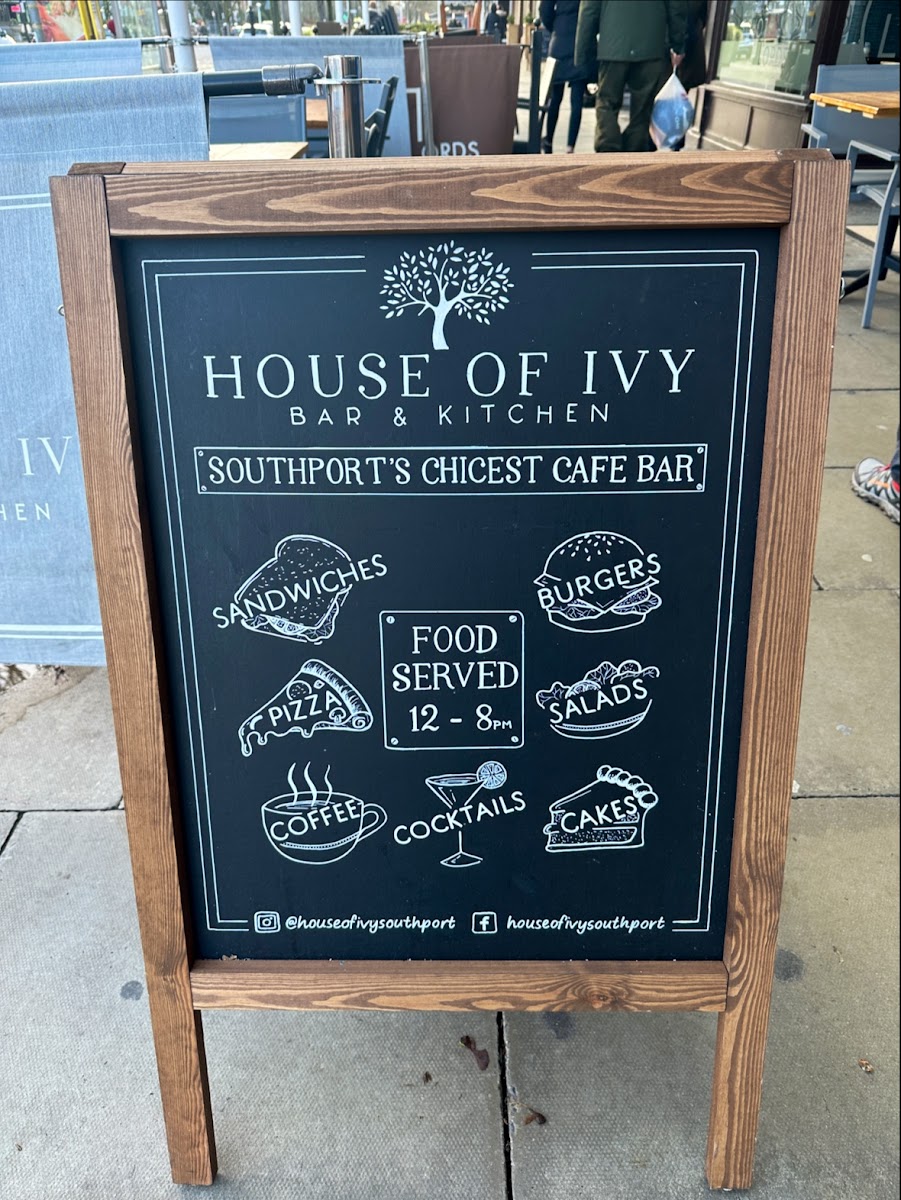 ORDS
HOUSE OF IVY
BAR & KITCHEN
SOUTHPORT'S CHICEST CAFE BAR
IV
HEN
SANDWICHES
BURGERS
FOOD
SERVED
12 - 8PM
PIZZA
SALADS
COFFEE
COCKTAILS
CAKES
@houseofivysouthport
houseofivysouthport